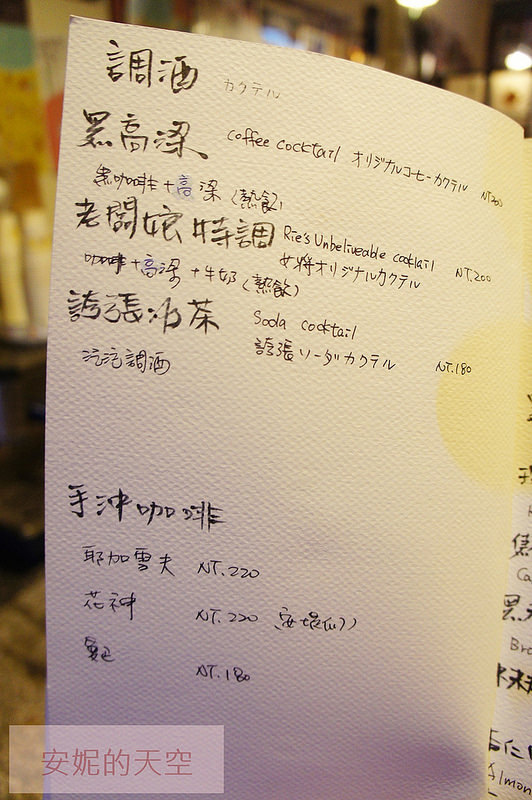 調酒 カクテル
黑高粱 coffee cocktail オリジナルコーヒーカクテル NT.200
黑咖啡+高粱(熱飲)
老闆娘特調 Rie's Unbeliveable cocktail
女将オリジナルカクテル NT.200
咖啡+高粱+牛奶(熱飲)
誇張冰茶 Soda cocktail
誇張ソーダカクテル NT.180
汽泡調酒
手沖咖啡
耶加雪夫 NT.220
花神 NT.220
NT.180
安妮的天空